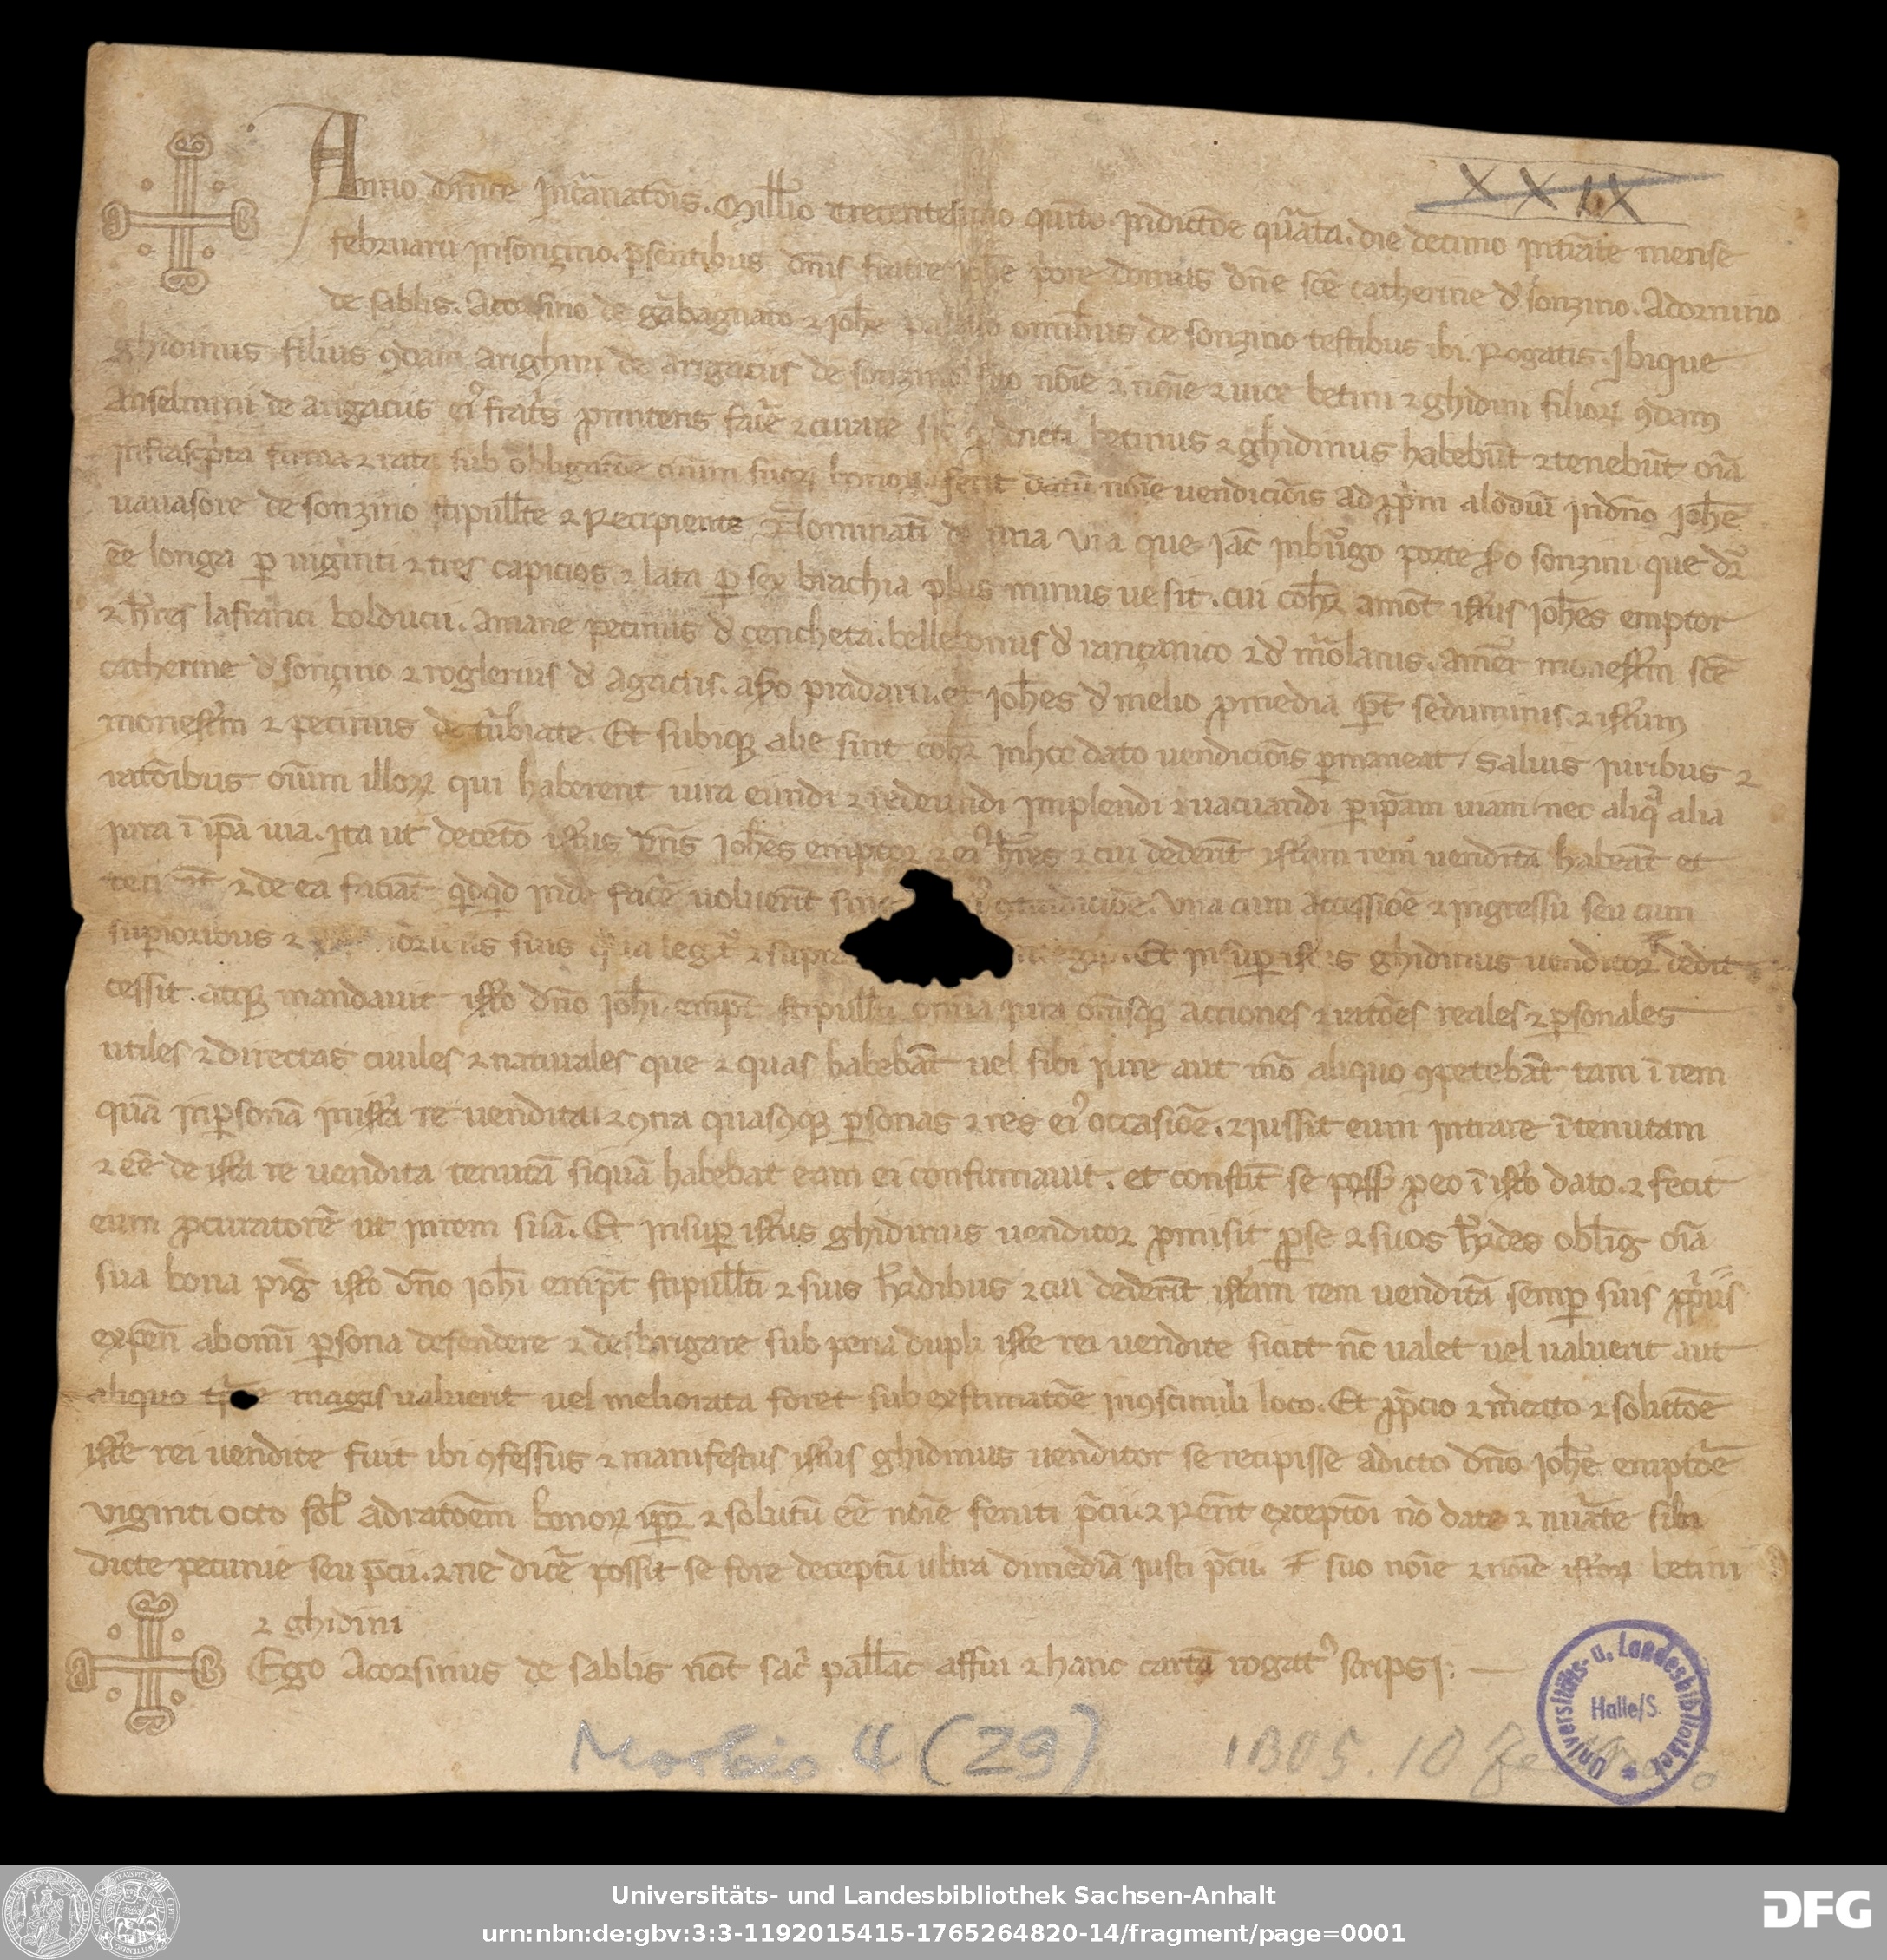 XXIX
Anno dnice Incarnatois. Millio trecentesimo quinto. Indictoe quarta. die decimo intrate mense
februarii in sonçino. psentibus dnis fratre Iohe pore domus dne sce catherine d sonzino. Adornino
de sablis. Aco sino de gabagnato et Iohe omibus de sonzino testibus ibi Rogatis. Ibique
ghidinus filius qdam arighini de arigatius de sonzino suo noie et noie et uice betini et ghidini filior qdam
Anselmini de arigacius ei fratris pmitens fare et curare sic pdicti betinus et ghidinus habebut et tenebut oia
infrascpta firma et rata sub obligatoe oium suor bonor. fecit datu noie vendiciois ad ppm alodiu in dno Iohe
vavasore de sonzino stipullte et Recipiente Nominati de una via que iac in burgo porte sonzini que dr
ee longa p viginti et tres capicios et lata p sex brachia plus minus ve sit. cui coher amot istius Iohes emptor
et hres lafranci bolducii. Amane pecinus d cencheta. bellebonus d rançanico et d mrolatus. Amer monestm sce
catherine d sonçino et roglerius d Agacius. pradarii. et Iohes d melio pmedia pt seduminis et istum
monestm et pecinus de turbiate. Et sibique alie sint coher in hoc dato vendiciois pmaneat. Saluis iuribus et
ratoibus oium illor qui haberent iura eundi et redeundi implendi et vacuandi p ipam viam nec aliq alia
iura i ipa via. Ita ut deceto istius dns Iohes emptor et ei hres et cui dederit istam rem vendita habeat et
ten at et de ea faciat qdqd inde face voluerit sine otradicioe. Una cum Accessioe et ingressu seu cum
supioribus et suis et supra integ. Et insup ist s ghidinus venditor dedit
cessit atque mandavit isto dno Iohi empt stipullti omia iura omisque acciones et ratoes reales et psonales
utiles et directas civiles et naturales que et quas habebat vel sibi iure aut mo aliquo qpetebat tam i rem
qua in psona in ista re vendita et qtra quasqque psonas et res ei occasioe. et iussit eum intrare i tenutam
et ee de ista re vendita tenuta siqua habebat eam ei confirmavit. et constit se poss p eo i isto dato. et fecit
eum pcuratore ut in rem sua. Et insup istius ghidinus venditor pmisit p se et suos hredes oblig oia
sua bona pig isto dno Iohi empt stipullti et suis hredibus et cui dederit istam rem vendita semp suis ppiis
expen ab omi psona defendere et desbrigare sub pena dupli iste rei vendite sicut nc valet vel valuerit aut
aliquo tpre magis valuerit vel meliorata foret sub exstimatoe in qscimili loco. Et p pcio et mcato et solutoe
iste rei vendite fuit ibi qfessus et manifestus istius ghidinus venditor se recipisse a dicto dno Iohe emptore
viginti octo sol ad ratoem bonor ipr et solutu ee noie feniti pcii et Rent exceptoi no date et nurate sibi
dicte pecunie seu pcii. et ne dice possit se fore deceptu ultra dimedia iusti pcii. suo noie et noie istor betini
et ghidini
Ego Acorsinus de sablis not sac pallac affui et hanc carta rogat scripsi:
Morbio 4 (29) 1305. 10
Universitäts- u. Landesbibliothek
Halle/S.
Universitäts- und Landesbibliothek Sachsen-Anhalt
urn:nbn:de:gbv:3:3-1192015415-1765264820-14/fragment/page=0001
DFG